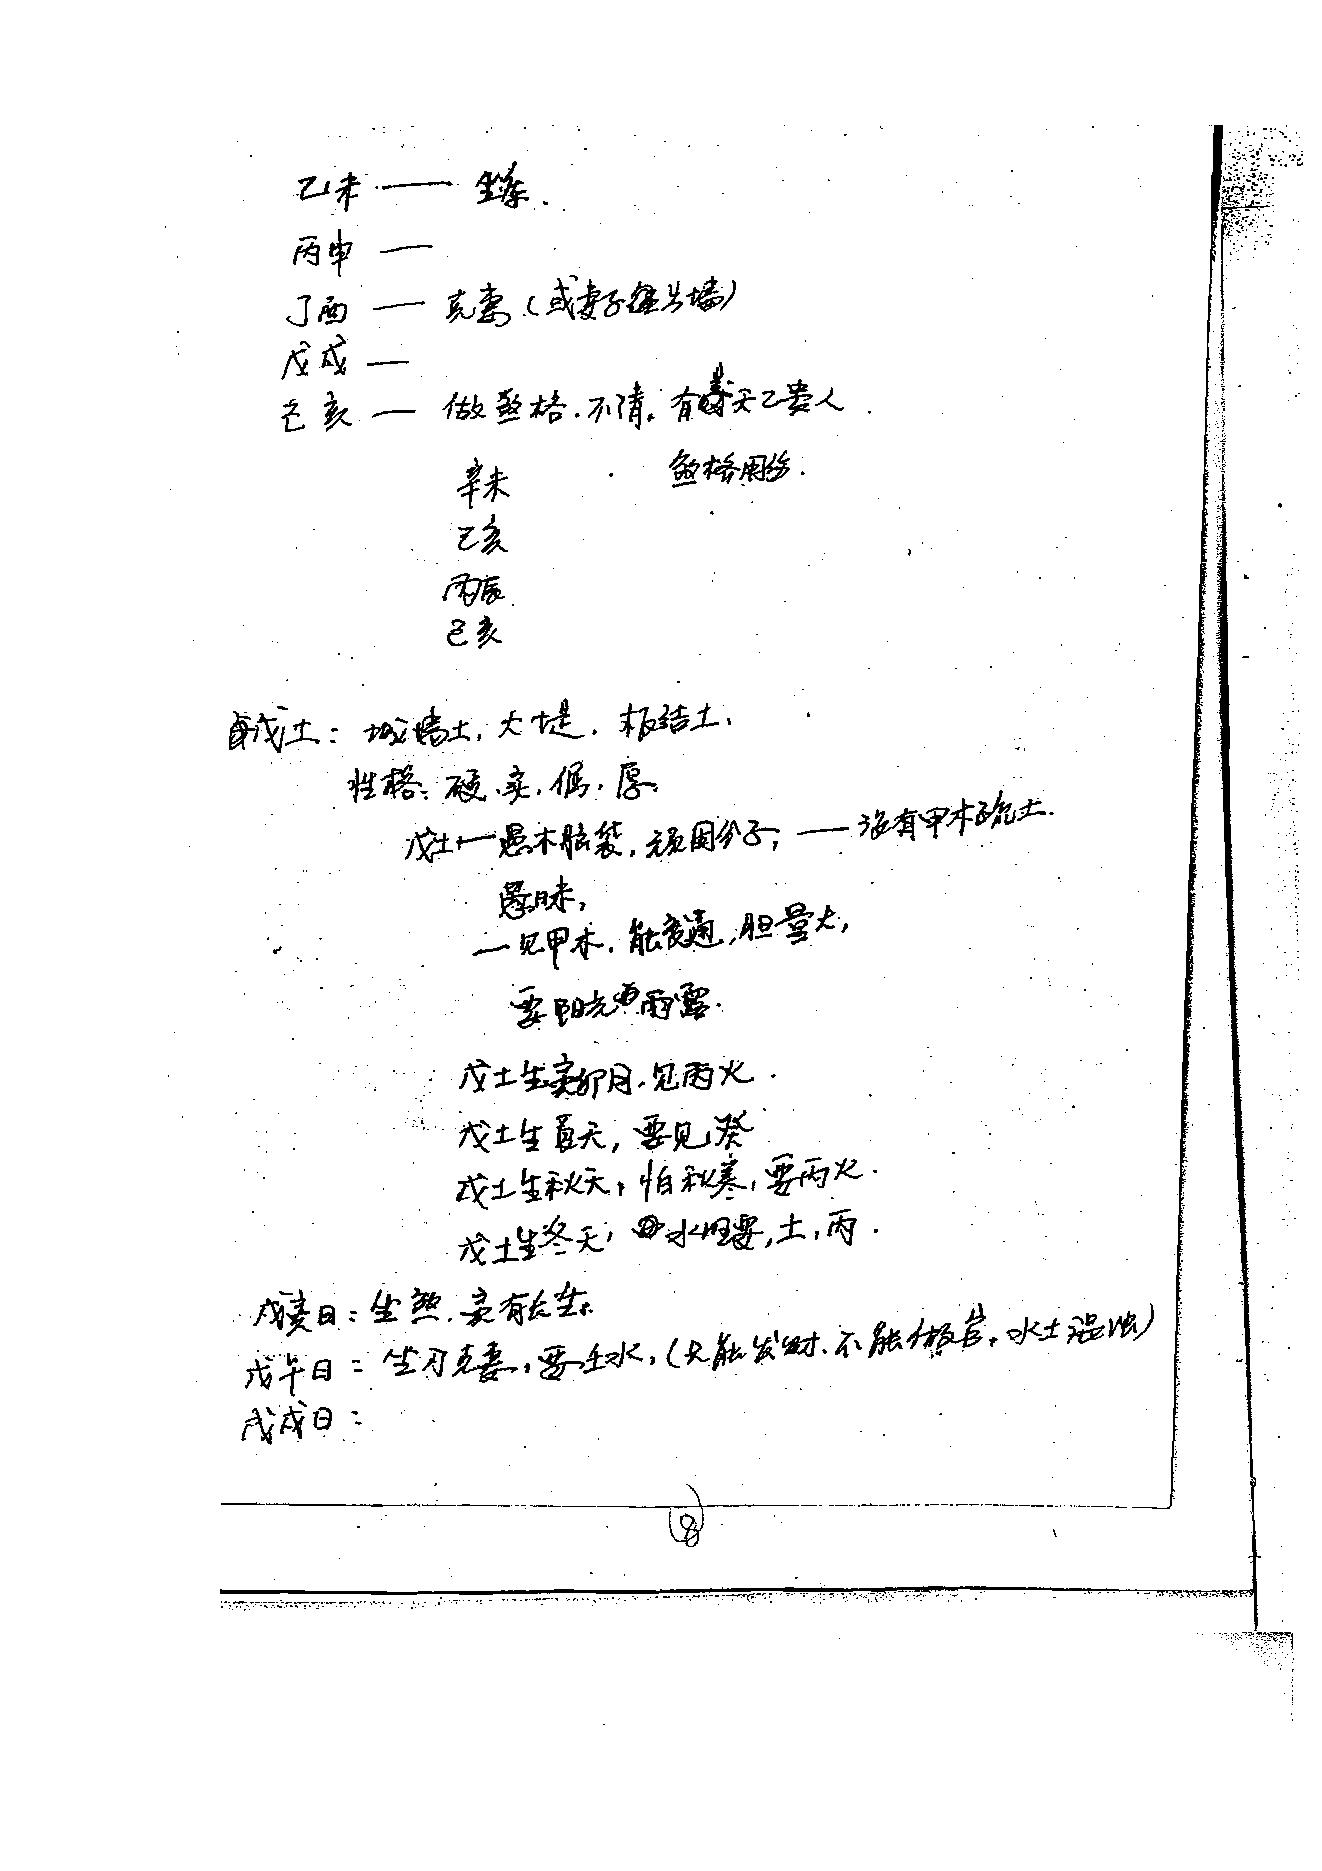 乙未 ——
丙申 —
丁酉 — 克妻(或妻子 墙)
戊戌 —
己亥 — 做煞格.不清。有 天乙贵人
煞格用
辛未
乙亥
丙辰
己亥
戊土: 城墙土, 大堤. 板结土.
性格: 硬.实. .厚.
戊土— 木脑袋, 顽固分子; —— 没有甲木 土.
愚昧,
— 见甲木. 能变通,胆量大,
要阳光 雨露.
戊土生寅卯月.见丙火.
戊土生夏天, 要见癸
戊土生秋天, 怕秋寒, 要丙火.
戊土生冬天, 水旺要,土,丙.
戊寅日: 坐煞.寅有长生.
戊午日: 坐刃克妻, 要壬水,(只能发财.不能做官.水土混浊)
戊戌日:
8